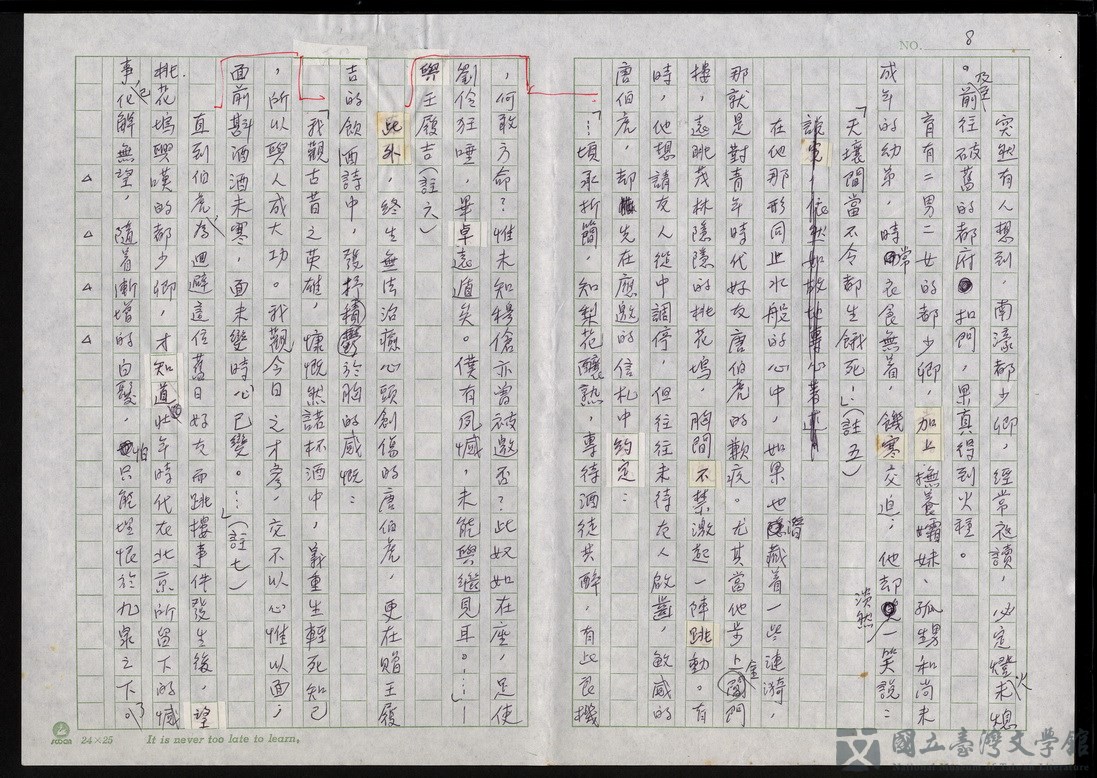 NO. 8
突然有人想到,南濠都少卿,經常夜讀,必定燈火未熄
。及至前往破舊的都府扣門,果真得到火種。
育有二男二女的都少卿,加上撫養孀妹、孤甥和尚未
成年的幼弟,時常衣食無着,饑寒交迫;他却漠然一笑說:
「天壤間當不令都生餓死…」(註五)
說完,依然如故地專心著述
在他那形同止水般的心中,如果也潛藏着一些漣漪,
那就是對青年時代好友唐伯虎的歉疚。尤其當他步上金閶門
樓,遠眺茂林隱隱的桃花塢,胸間不禁激起一陣跳動。有
時,他想請友人從中調停,但往往未待友人啟齒,敏感的
唐伯虎,却先在應邀的信札中約定:
「…頃承折簡,知梨花釀熟,專待酒徒共醉,有此良機
,何敢方命?惟未知穆倉亦曾被邀否?此奴如在座,足使
劉伶狂唾,畢卓遠遁矣。僕有夙憾,未能與繼見耳。…」—
與王履吉(註六)
此外,終生無法治癒心頭創傷的唐伯虎,更在贈王履
吉的飲酒詩中,發抒積鬱於胸的感慨:
「我觀古昔之英雄,慷慨然諾杯酒中,義重生輕死知己
,所以與人成大功。我觀今日之才彥,交不以心惟以面;
面前斟酒酒未寒,面未變時心已變。…」(註七)
直到伯虎為迴避這位舊日好友而跳樓事件發生後,望
桃花塢興嘆的都少卿,才知道壯年時代在北京所留下的憾
事,已化解無望,隨着漸增的白髮,怕只能埋恨於九泉之下了。
24×25 It is never too late to learn.
國立臺灣文學館
National Museum of Taiwan Literature